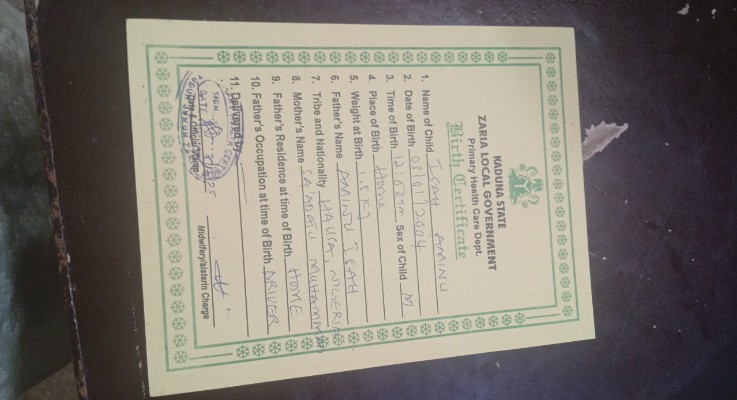 KADUNA STATE
ZARIA LOCAL GOVERNMENT
Primary Health Care Dept.
Birth Certificate
1. Name of Child ISAH AMINU
2. Date of Birth 03/01/2004
3. Time of Birth 12:00am Sex of Child M
4. Place of Birth Home
5. Weight at Birth 1.5kg
6. Father's Name AMINU ISAH
7. Tribe and Nationality HAUSA, NIGERIA
8. Mother's Name SA'ADATU MUHAMMAD
9. Father's Residence at time of Birth HOME
10. Father's Occupation at time of Birth DRIVER
11. Delivered by
Midwifery/sisterin Charge
SIGN
DATE